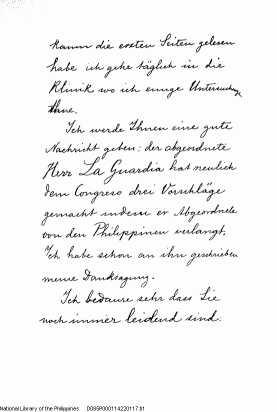 kaum die ersten Seiten gelesen
habe ich gehe täglich in die
Klinik wo ich einige Untersuchunge
thue.
Ich werde Ihnen eine gute
Nachricht geben: der abgeordnete
Herr La Guardia hat neulich
dem Congress drei Vorschläge
gemacht indem er Abgeordnete
von den Philippinen verlangt,
Ich habe schon an ihn geschrieben
meine Danksagung.
Ich bedaure sehr dass Sie
noch immer leidend sind.
National Library of the Philippines D085R000114220117.tif